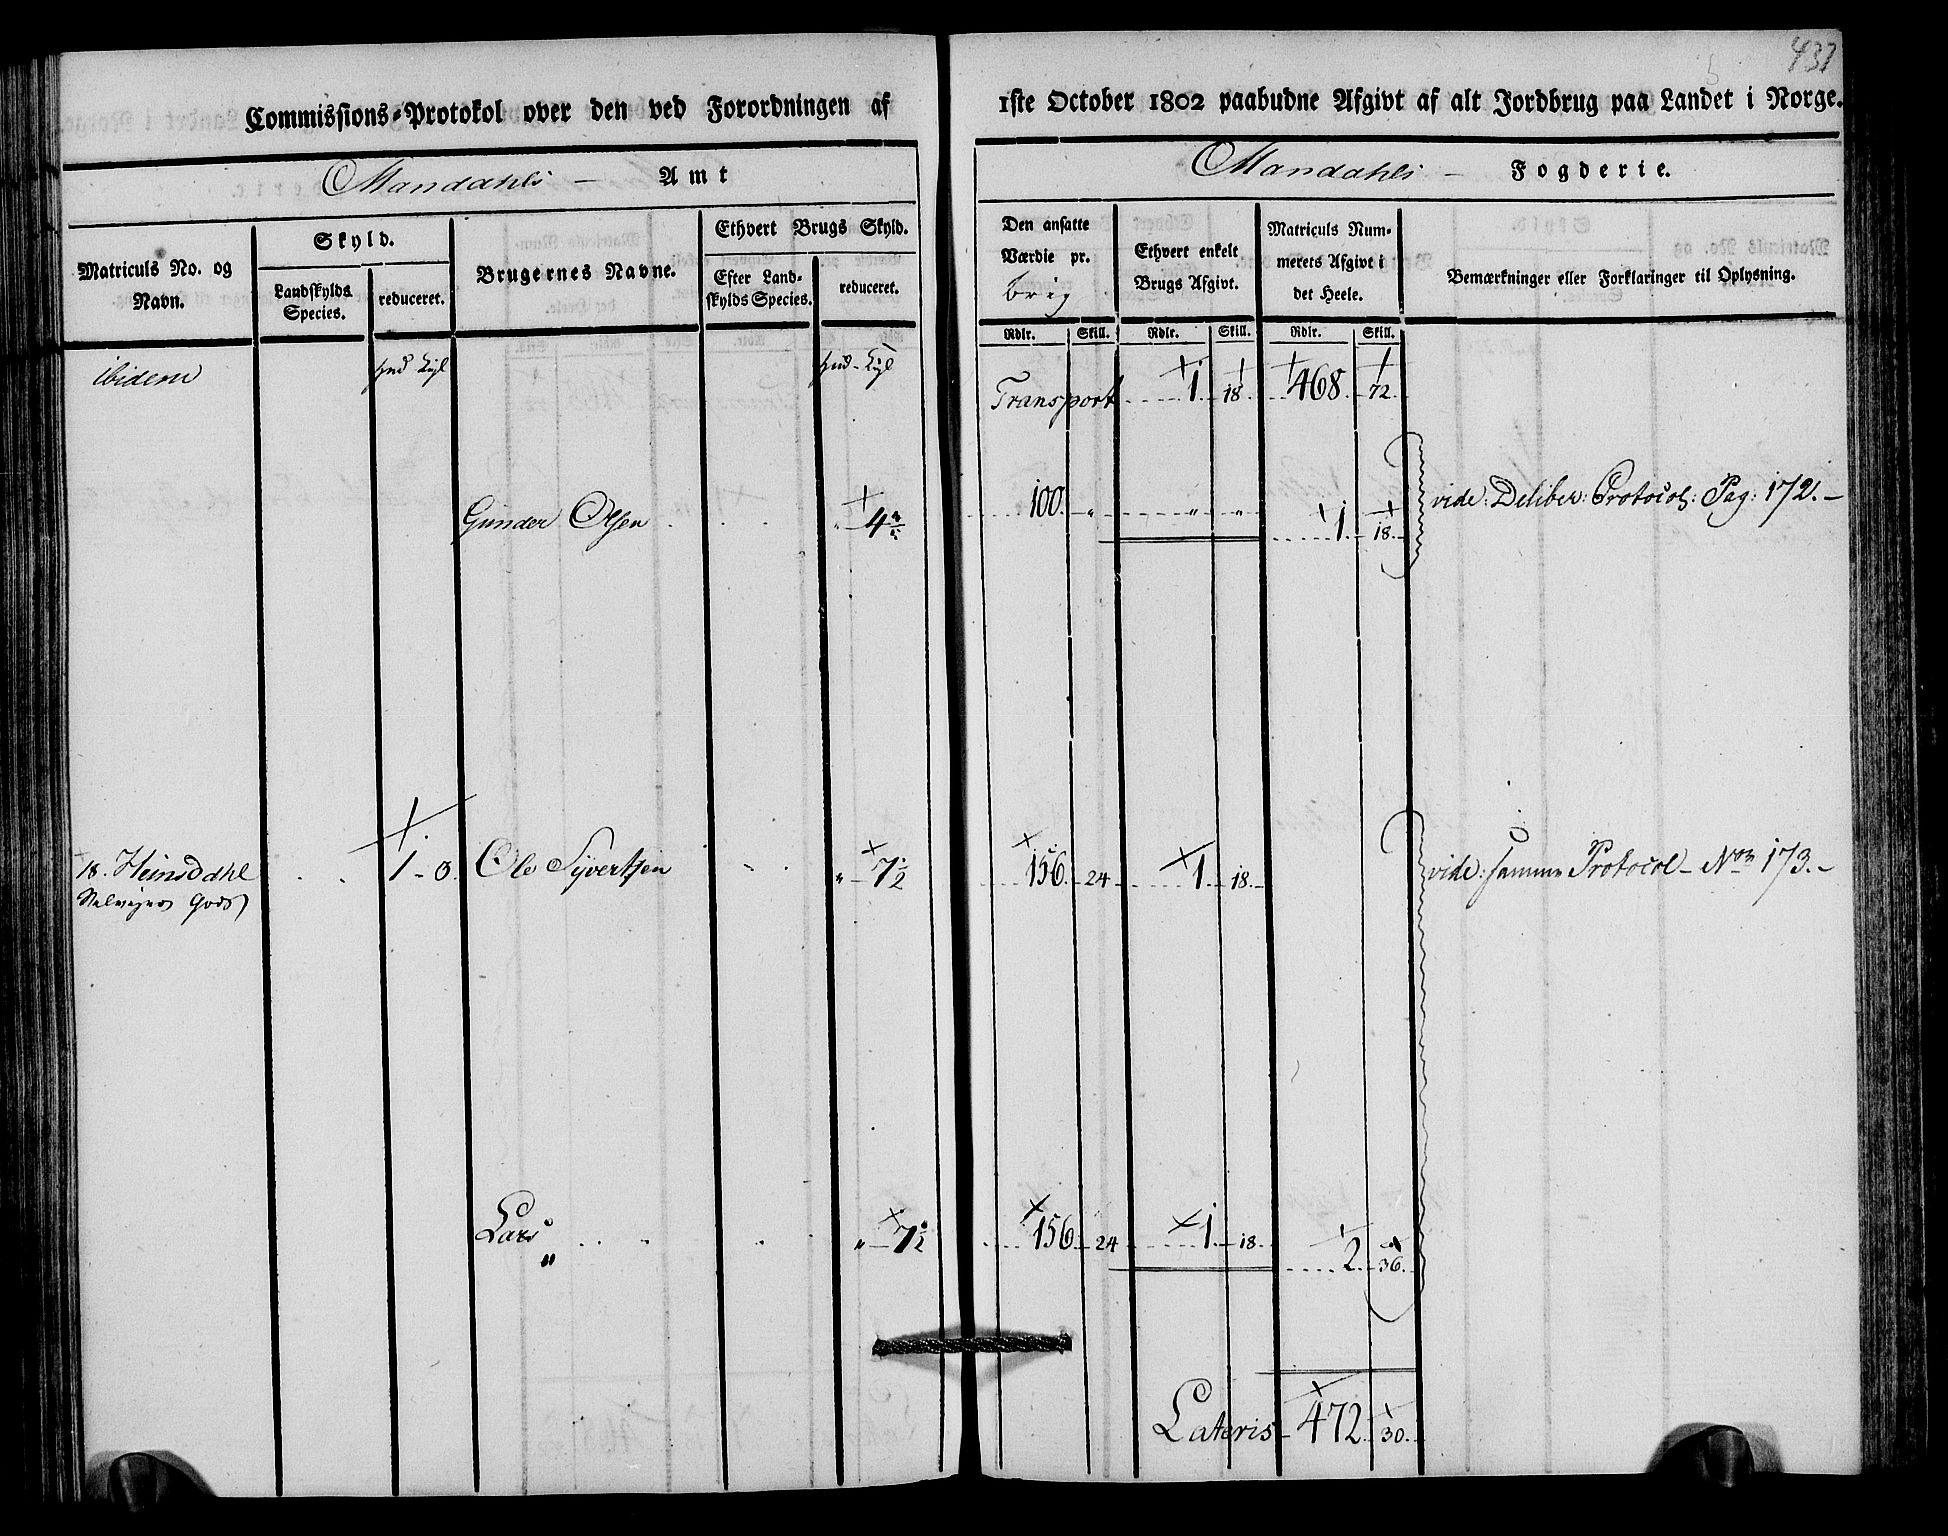 437
Commissions-Protokol over den ved Forordningen af 1ste October 1802 paabudne Afgivt af alt Jordbrug paa Landet i Norge.
Mandahls Amt
Mandahls Fogderie.
Matriculs No. og Navn.
Skyld.
Landskylds Species.
reduceret.
Brugernes Navne.
Ethvert Brugs Skyld.
Efter Landskylds Species.
reduceret.
Den ansatte Værdie pr. brug
Ethvert enkelt Brugs Afgivt.
Matriculs Nummerets Afgivt i det Heele.
Bemærkninger eller Forklaringer til Oplysning.
Rdlr. Skill. Rdlr. Skill. Rdlr. Skill.
ibidem
Transport 1 18 468 72
Gunder Olsen 100 " " " 1 18 vide: Deliber: Protocol: Pag: 172.
18. Heinsdahl 1 - 0 Ole Syvertsen " 7 1/2 156 24 1 18 vide: samme Protocol No 173.
Gods
Lars " " 7 1/2 156 24 1 18 2 36
Lateris 472 30